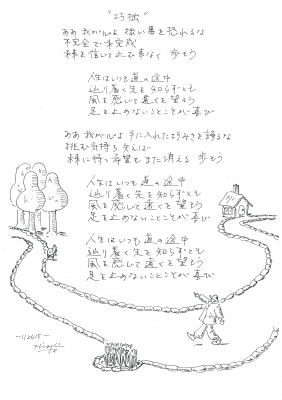 "巧拙"
ああ 我が心よ 拙い事を恐れるな
不完全で 未完成
未来を信じて 止む事なく 歩もう
人生はいつも 道の途中
辿り着く先を 知らずとも
風を感じて 遠くを 望もう
足を止めないことこそが 喜び
ああ 我が心よ 手に入れた巧みさを 誇るな
挑む気持ち 失えば
未来に待つ 希望もまた 消える 歩もう
人生はいつも 道の途中
辿り着く先を 知らずとも
風を感じて 遠くを 望もう
足を止めないことこそが 喜び
人生はいつも 道の途中
辿り着く先を 知らずとも
風を感じて 遠くを 望もう
足を止めないことこそが 喜び